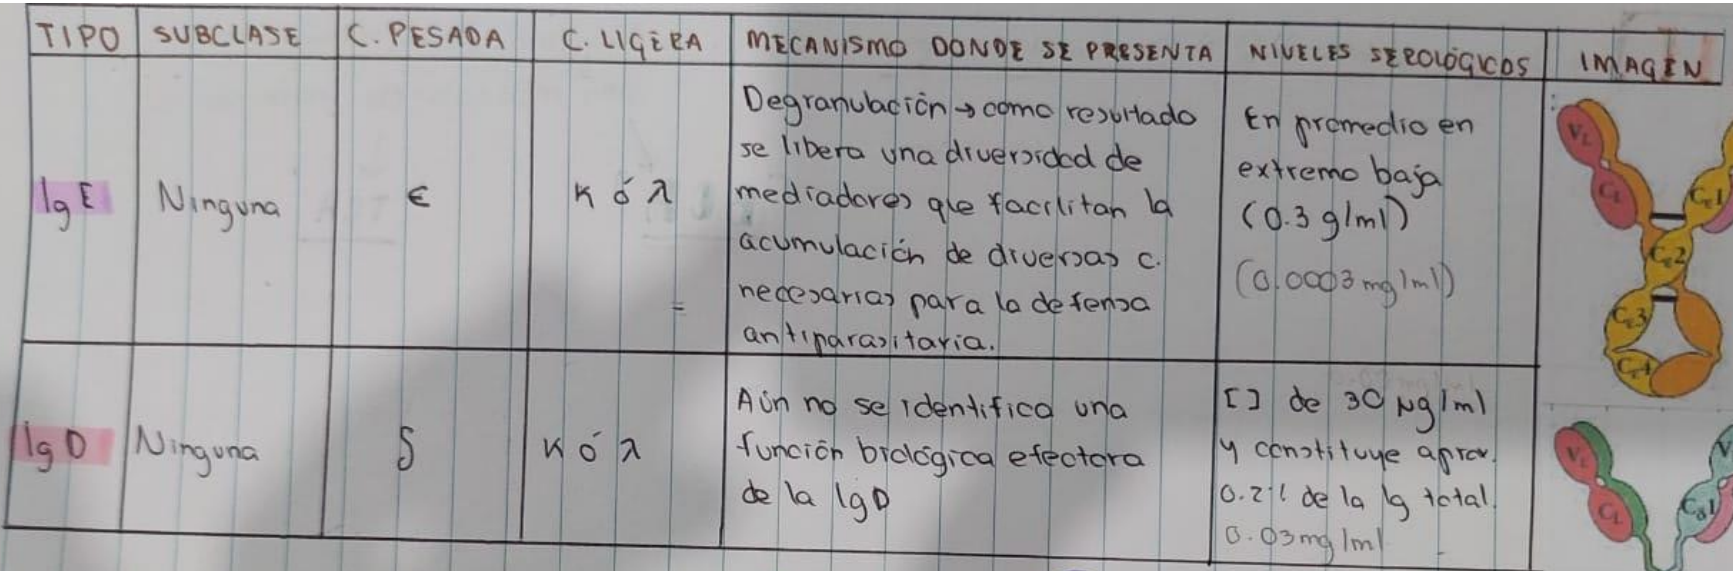 TIPO SUBCLASE C. PESADA C. LIGERA MECANISMO DONDE SE PRESENTA NIVELES SEROLÓGICOS IMAGEN
IgE Ninguna ε κ ó λ
Degranulación → como resultado
se libera una diversidad de
mediadores que facilitan la
acumulación de diversas c.
necesarias para la defensa
antiparasitaria.
En promedio en
extremo baja
(0.3 g/ml)
(0.0003 mg/ml)
VL
CL
Cε1
Cε2
Cε3
Cε4
IgD Ninguna δ κ ó λ
Aún no se identifica una
función biológica efectora
de la IgD
[] de 30 μg/ml
y constituye aprox.
0.2% de la Ig total.
0.03 mg/ml
VL
CL
V
Cδ1